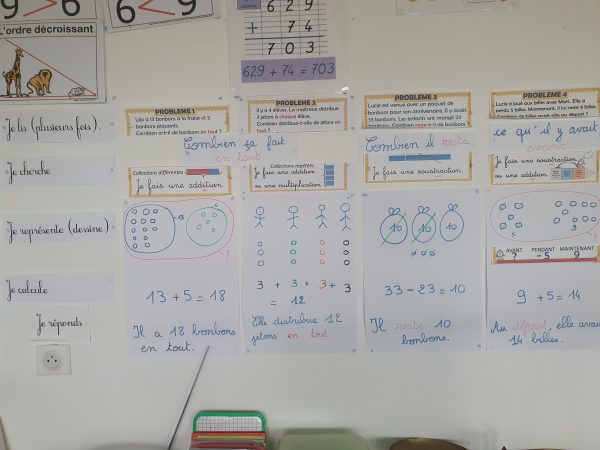 9 > 6
6 < 9
L'ordre décroissant
6 2 9
+ 7 4
7 0 3
629 + 74 = 703
Je lis (plusieurs fois).
Je cherche
Je représente (dessine)
Je calcule
Je réponds
PROBLEME 1
Léo a 13 bonbons à la fraise et 5
bonbons piquants.
Combien a-t-il de bonbons en tout ?
Combien ça fait
en tout
Collections différentes
Je fais une addition
13 + 5 = 18
Il a 18 bonbons
en tout.
PROBLEME 2
Il y a 4 élèves. La maîtresse distribue
3 jetons à chaque élève.
Combien distribue-t-elle de jetons en
tout ?
Collections répétées
Je fais une addition
ou une multiplication
3 + 3 + 3 + 3
= 12
Elle distribue 12
jetons en tout.
PROBLEME 3
Lucie est venue avec un paquet de
bonbons pour son anniversaire. Il y avait
33 bonbons. Les enfants ont mangé 23
bonbons. Combien reste-t-il de bonbons ?
Combien il reste
Je fais une soustraction
10 10 10
33 - 23 = 10
Il reste 10
bonbons.
PROBLEME 4
Lucie a joué aux billes avec Marc. Elle a
perdu 5 billes. Maintenant, il lui reste 9 billes.
Combien de billes avait-elle au départ ?
ce qu'il y avait
avant
Je fais une soustraction
ou une addition
5 9
?
AVANT PENDANT MAINTENANT
? -5 9
9 + 5 = 14
Au départ, elle avait
14 billes.